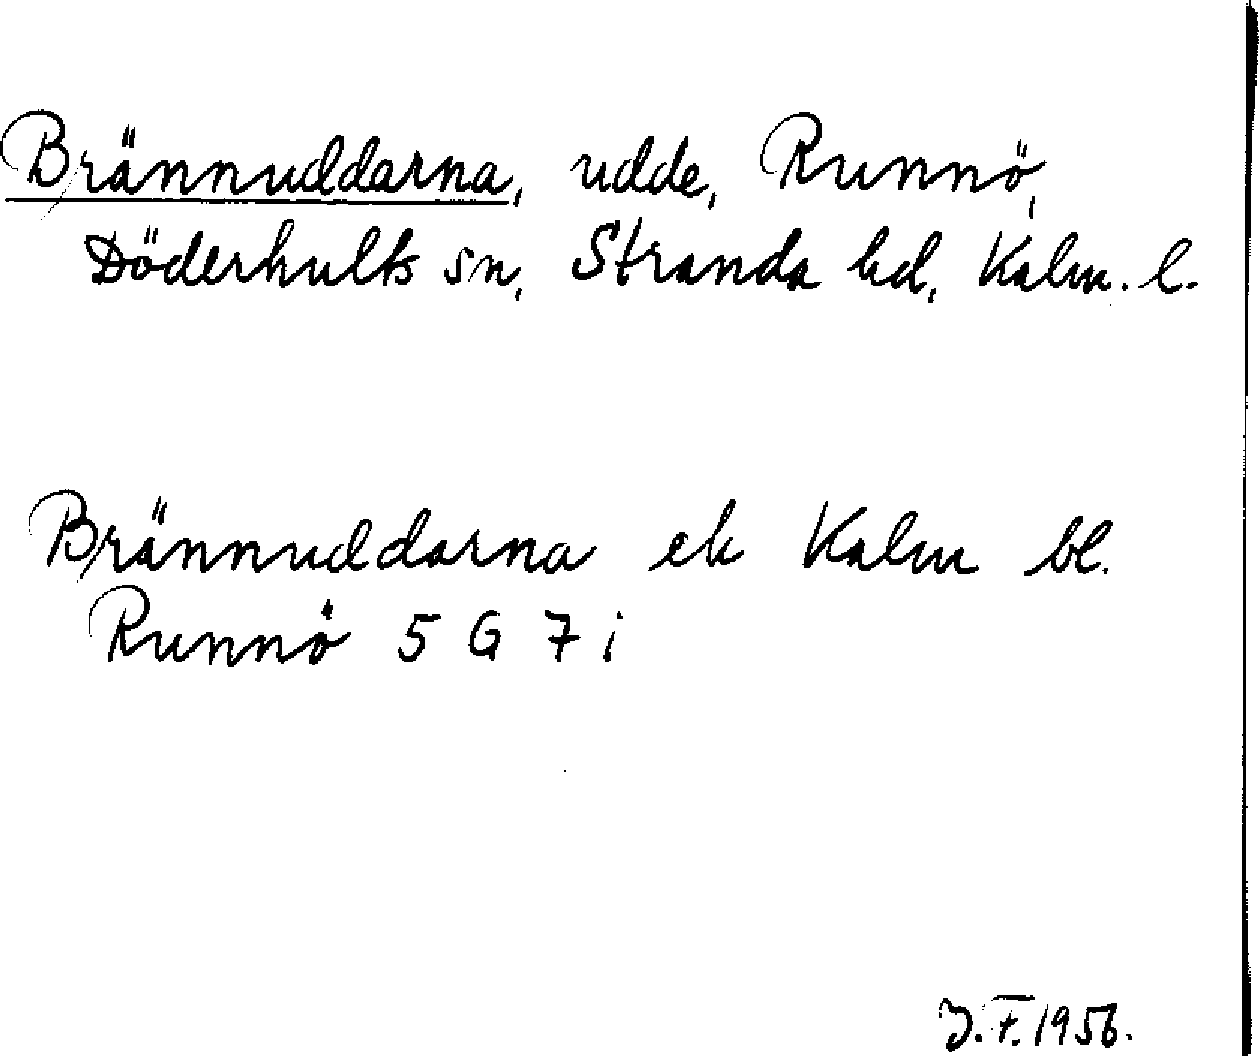 Brännuddarna, udde, Runnö,
Döderhults sn, Stranda hd, Kalm. l.
Brännuddarna ek Kalm bl.
Runnö 5 G 7 i
J.F. 1956.